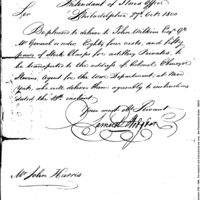 Intendant of Stores Office
Philadelphia 27th Octr 1800
Sir
Be pleased to deliver to John Wilkins Esqr Qr
Mr General or order Eighty four coats, and fifty
pairs of black Clasps for artillery Privates, to
be transported to the address of Colonel Ebenezer
Stevens, Agent for the War Department, at New
York, who will deliver them agreeably to instructions
dated the instant
Your most Obt Servant
Samuel Hodgdon
Mr John Harris